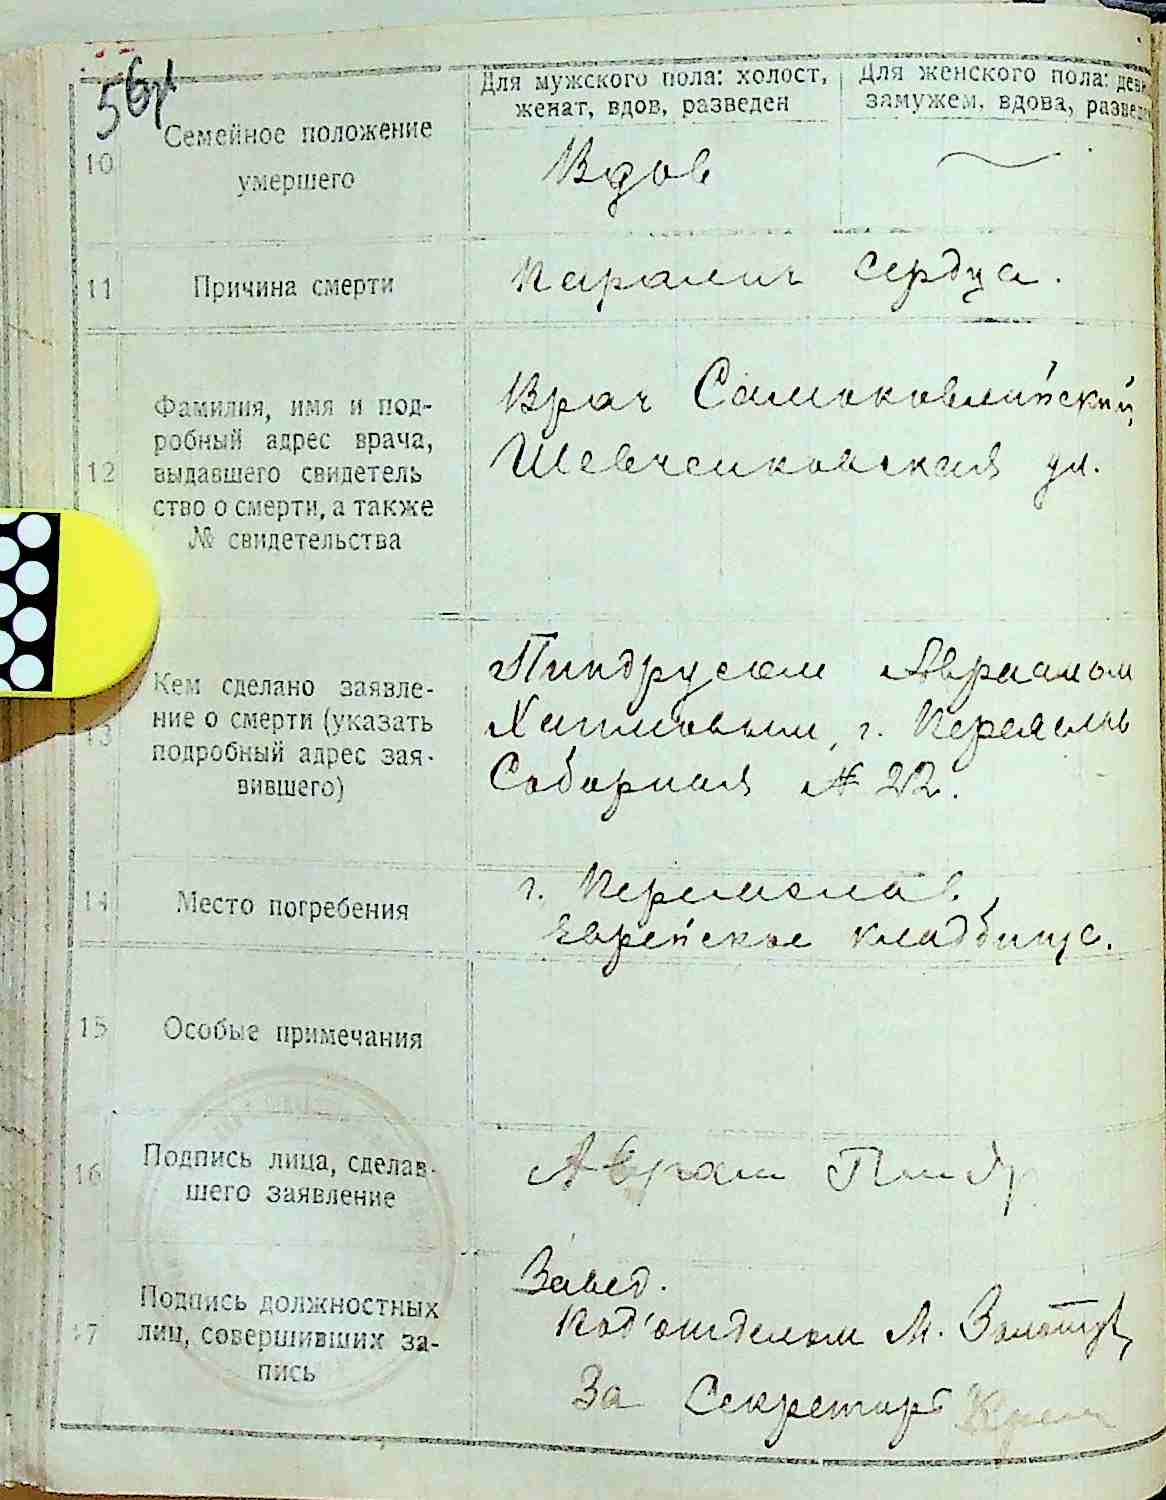 56
Для мужского пола: холост,
женат, вдов, разведен
Для женского пола:
замужем, вдова,
10
Семейное положение
умершего
Вдов
11
Причина смерти
Паралич сердца.
12
Фамилия, имя и под-
робный адрес врача,
выдавшего свидетель
ство о смерти, а также
№ свидетельства
Врач
Шевченковская ул.
13
Кем сделано заявле-
ние о смерти (указать
подробный адрес зая-
вившего)
Пиндрусом Авраамом
г. Переяслав
Соборная № 22.
14
Место погребения
г. Переяслав,
Еврейское кладбище.
15
Особые примечания
16
Подпись лица, сделав-
шего заявление
Аврам Пиндр
17
Подпись должностных
лиц, совершивших за-
пись
Завед.
Под'отделом М.
За Секретаря